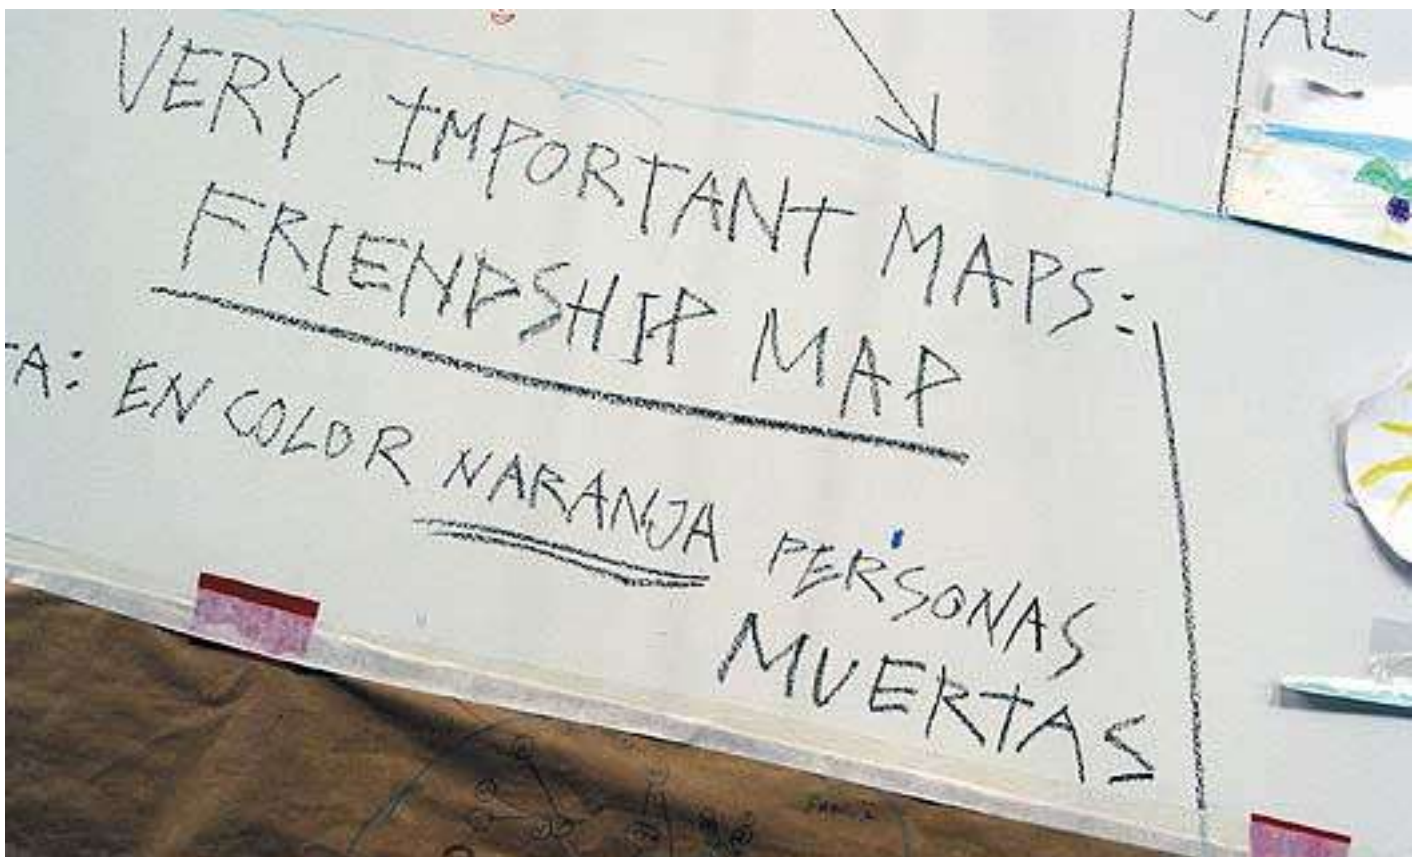 VERY IMPORTANT MAPS:
FRIENDSHIP MAP
TA: EN COLOR NARANJA PERSONAS
MUERTAS